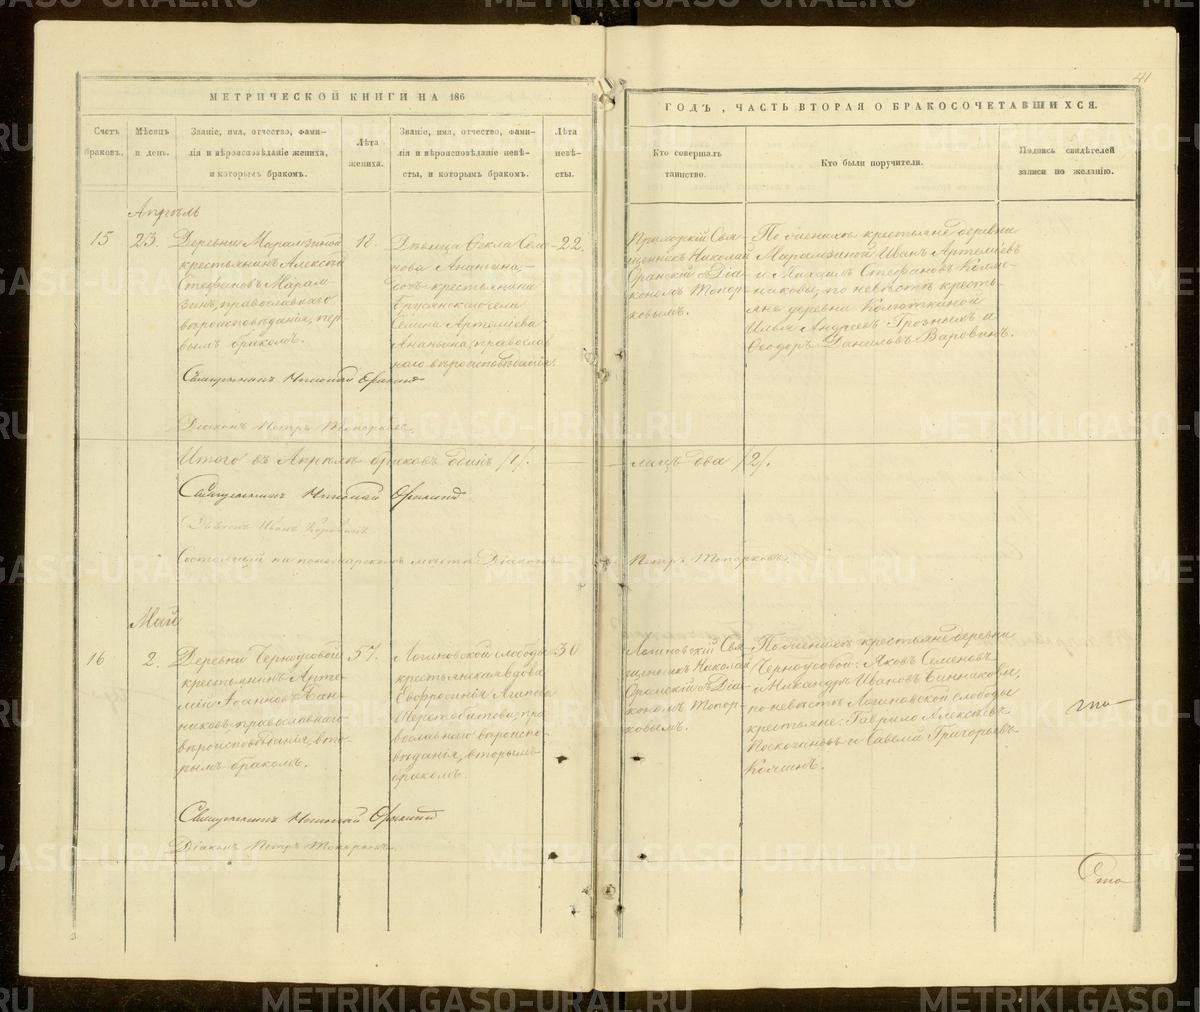 41
МЕТРИЧЕСКОЙ КНИГИ НА 186
ГОДЪ, ЧАСТЬ ВТОРАЯ О БРАКОСОЧЕТАВШИХСЯ.
Счетъ браковъ.
Мѣсяцъ и день.
Званіе, имя, отчество, фами-
лія и вѣроисповѣданіе жениха,
и которымъ бракомъ.
Лѣта
жениха.
Званіе, имя, отчество, фами-
лія и вѣроисповѣданіе невѣ-
сты, и которымъ бракомъ.
Лѣта
невѣ-
сты.
Кто совершалъ
таинство.
Кто были поручители.
Подпись свидѣтелей
записи по желанію.
Апрѣль
15
23.
Деревни Марамзиной
крестьянинъ Алексѣй
Стефановъ Марам
зинъ, православнаго
вѣроисповѣданія, пер
вымъ бракомъ.
18.
Дѣвица Фекла Семе-
нова Ананьина,
дочь крестьянина
Бруснскаго села
Семена Артеміева
Ананьина, православ
наго вѣроисповѣданія.
22.
Приходскій Свя-
щенникъ Николай
Оранскій съ Діа-
кономъ Топор-
ковымъ.
По женихѣ крестьяне деревни
Марамзиной Иванъ Артемьевъ
и Михаилъ Стефановъ
по невѣстѣ кресть-
яне деревни
Илья Андреевъ Грозныхъ и
Ѳеодоръ Даниловъ Варовинъ.
Священникъ Николай Оранскій
Діаконъ Петръ Топорковъ.
Итого въ Апрѣлѣ браковъ одинъ /1/.
лицъ два /2/.
Священникъ Николай Оранскій
Діаконъ Иванъ
Состоящій на пономарскомъ мѣстѣ Діаконъ
Петръ Топорковъ.
Май
16
2.
Деревни Черноусовой
крестьянинъ Арте-
мій Іоанновъ Сан-
никовъ, православнаго
вѣроисповѣданія, вто-
рымъ бракомъ.
57.
Логиновской слободы
крестьянская вдова
Евфросинія Агапіева
Шеростобитова, пра
вославнаго вѣроиспо-
вѣданія, вторымъ
бракомъ.
30
Логиновскій Свя-
щенникъ Николай
Оранскій съ Діа-
кономъ Топор-
ковымъ.
По женихѣ крестьяне деревни
Черноусовой: Яковъ Семеновъ
и Никандръ Ивановъ Санниковы,
по невѣстѣ Логиновской слободы
крестьяне: Гаврило Алексѣевъ
Поскочиновъ и Савелій Григорьевъ
Священникъ Николай Оранскій
Діаконъ Петръ Топорковъ.
METRIKI.GASO-URAL.RU